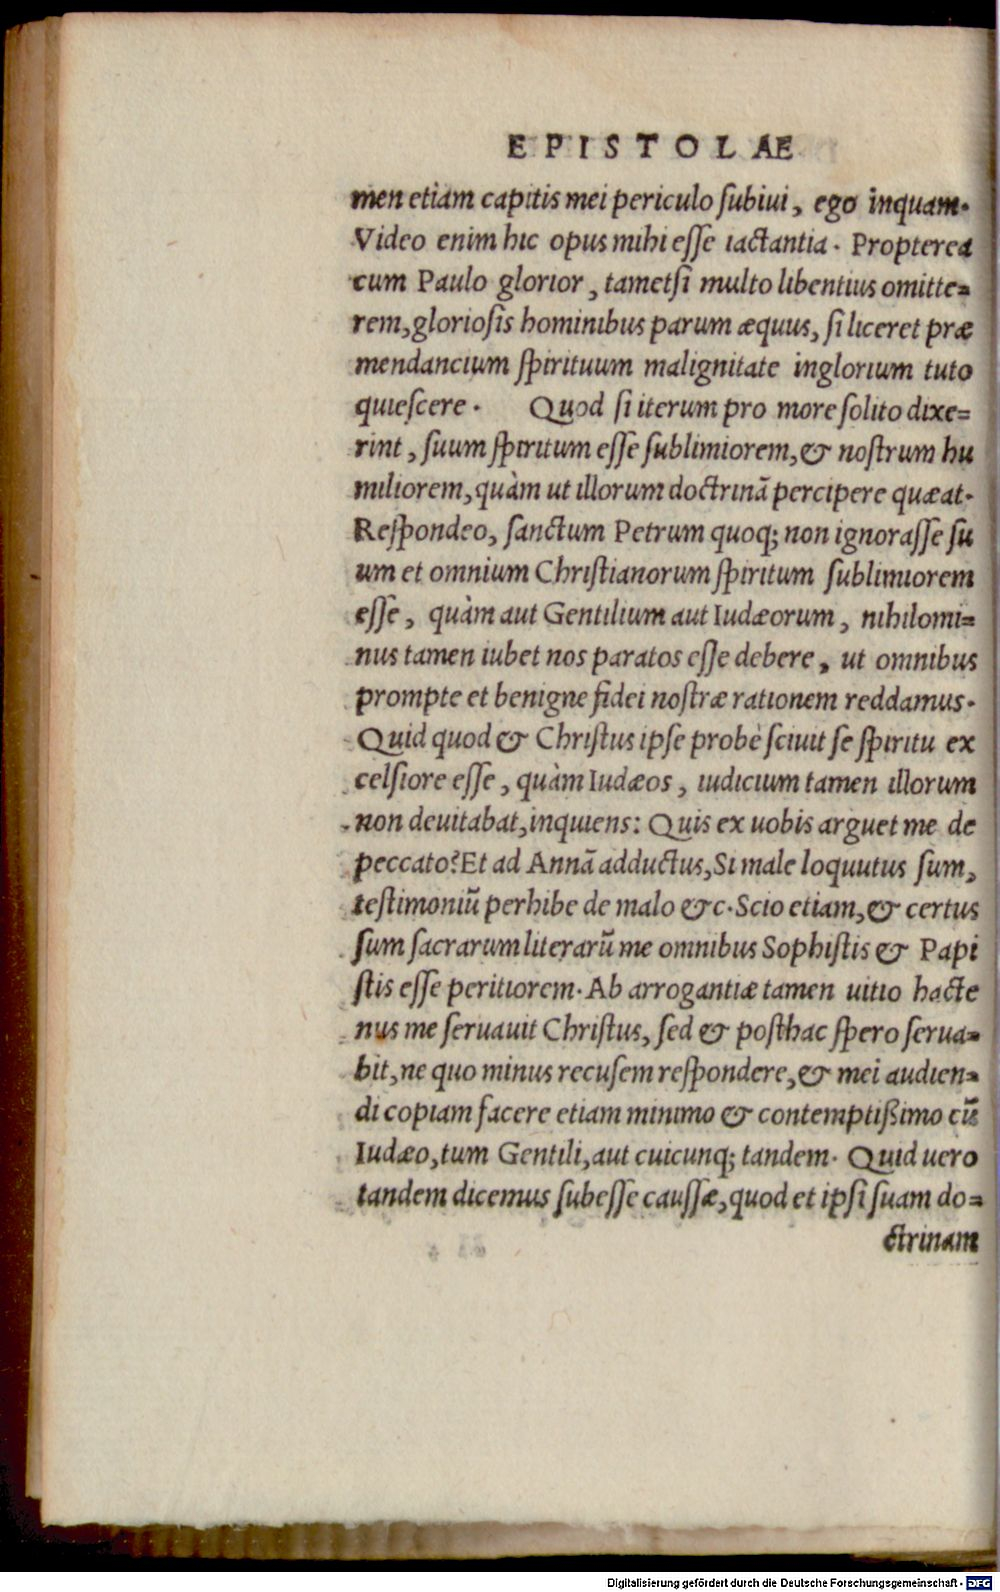 EPISTOLAE
men etiam capitis mei periculo ſubiui, ego inquam.
Video enim hic opus mihi eſſe iactantia. Propterea
cum Paulo glorior, tametſi multo libentius omitte=
rem, glorioſis hominibus parum æquus, ſi liceret præ
mendancium ſpirituum malignitate inglorium tuto
quieſcere. Quod ſi iterum pro more ſolito dixe=
rint, ſuum ſpiritum eſſe ſublimiorem, & noſtrum hu
miliorem, quàm ut illorum doctrinā percipere quæat.
Reſpondeo, ſanctum Petrum quoq; non ignoraſſe ſu
um et omnium Chriſtianorum ſpiritum ſublimiorem
eſſe, quàm aut Gentilium aut Iudæorum, nihilomi=
nus tamen iubet nos paratos eſſe debere, ut omnibus
prompte et benigne fidei noſtræ rationem reddamus.
Quid quod & Chriſtus ipſe probè ſciuit ſe ſpiritu ex
celſiore eſſe, quàm Iudæos, iudicium tamen illorum
non deuitabat, inquiens: Quis ex uobis arguet me de
peccato? Et ad Annā adductus, Si male loquutus ſum,
teſtimoniū perhibe de malo &c. Scio etiam, & certus
ſum ſacrarum literarū me omnibus Sophiſtis & Papi
ſtis eſſe peritiorem. Ab arrogantiæ tamen uitio hacte
nus me ſeruauit Chriſtus, ſed & poſthac ſpero ſerua=
bit, ne quo minus recuſem reſpondere, & mei audien=
di copiam facere etiam minimo & contemptißimo cū
Iudæo, tum Gentili, aut cuicunq; tandem. Quid uero
tandem dicemus ſubeſſe cauſſæ, quod et ipſi ſuam do=
ctrinam
Digitalisierung gefördert durch die Deutsche Forschungsgemeinschaft - DFG